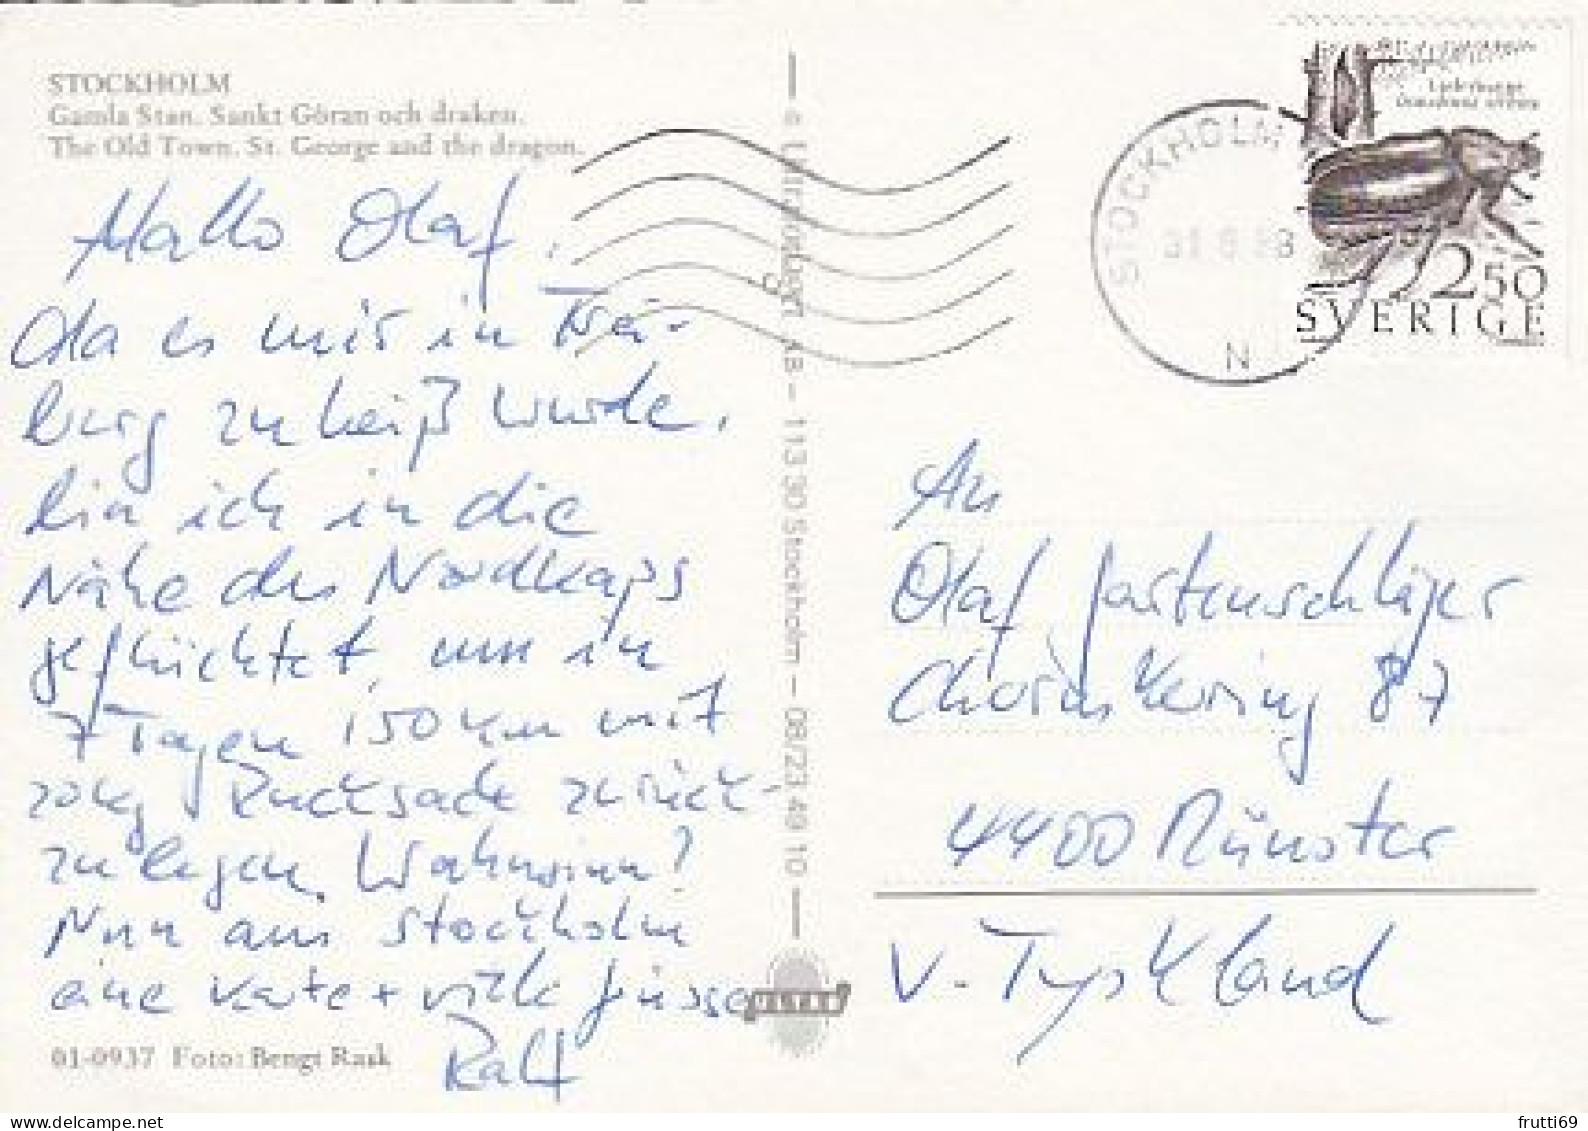 STOCKHOLM
Gamla Stan. Sankt Göran och draken.
The Old Town. St. George and the dragon.
Hallo Olaf,
da es mir in Frei-
burg zu heiß wurde,
bin ich in die
Nähe des Nordkaps
geflüchtet, um in
7 Tagen 150 km mit
20kg Rucksack zurück-
zulegen. Wahnsinn?
Nun aus Stockholm
eine Karte + viele Grüsse
Ralf
01-0937 Foto: Bengt Rask
AB - 113 30 Stockholm - 08/23 49 10
STOCKHOLM
N
2 50
SVERIGE
An
Olaf
87
4400 Münster
V-Tyskland
frutti69